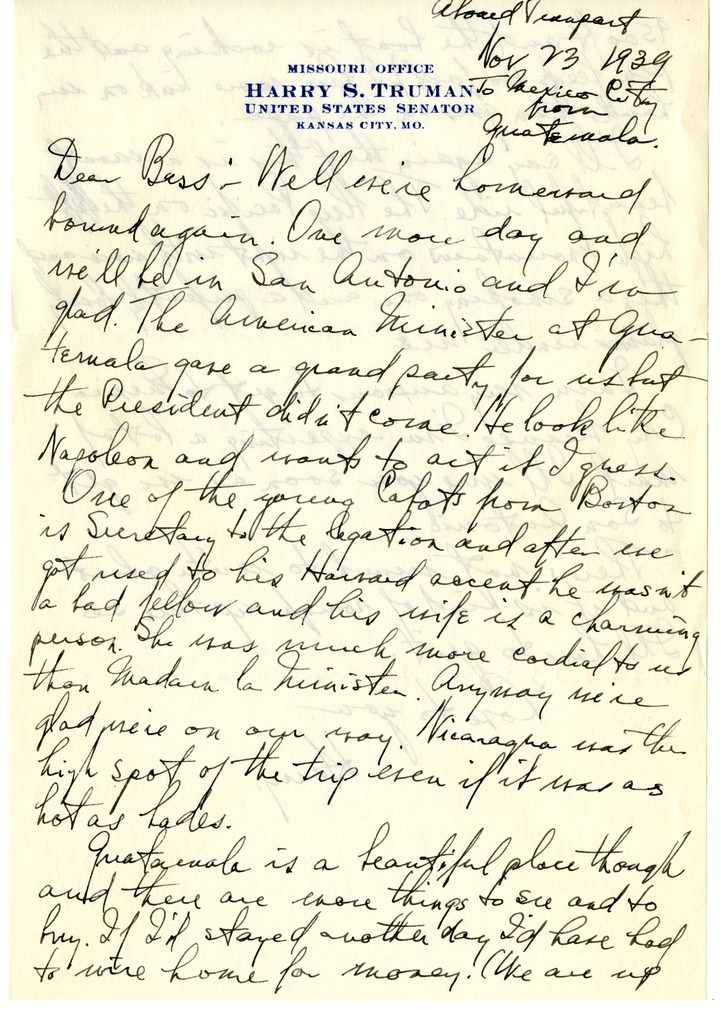 Aboard Transport
Nov 23 1939
To Mexico City
from
Guatemala.
MISSOURI OFFICE
HARRY S. TRUMAN
UNITED STATES SENATOR
KANSAS CITY, MO.
Dear Bess:- Well we're homeward
bound again. One more day and
we'll be in San Antonio and I'm
glad. The American Minister at Gua-
temala gave a grand party for us but
the President didn't come. He look like
Napoleon and wants to act it I guess.
One of the young Cabots from Boston
is Secretary to the legation and after we
got used to his Harvard accent he wasn't
a bad fellow and his wife is a charming
person. She was much more cordial to us
than Madam la Minister. Anyway we're
glad we're on our way. Nicaragua was the
high spot of the trip even if it was as
hot as hades.
Guatemala is a beautiful place though
and there are more things to see and to
buy. If I'd stayed another day I'd have had
to wire home for money. (We are up